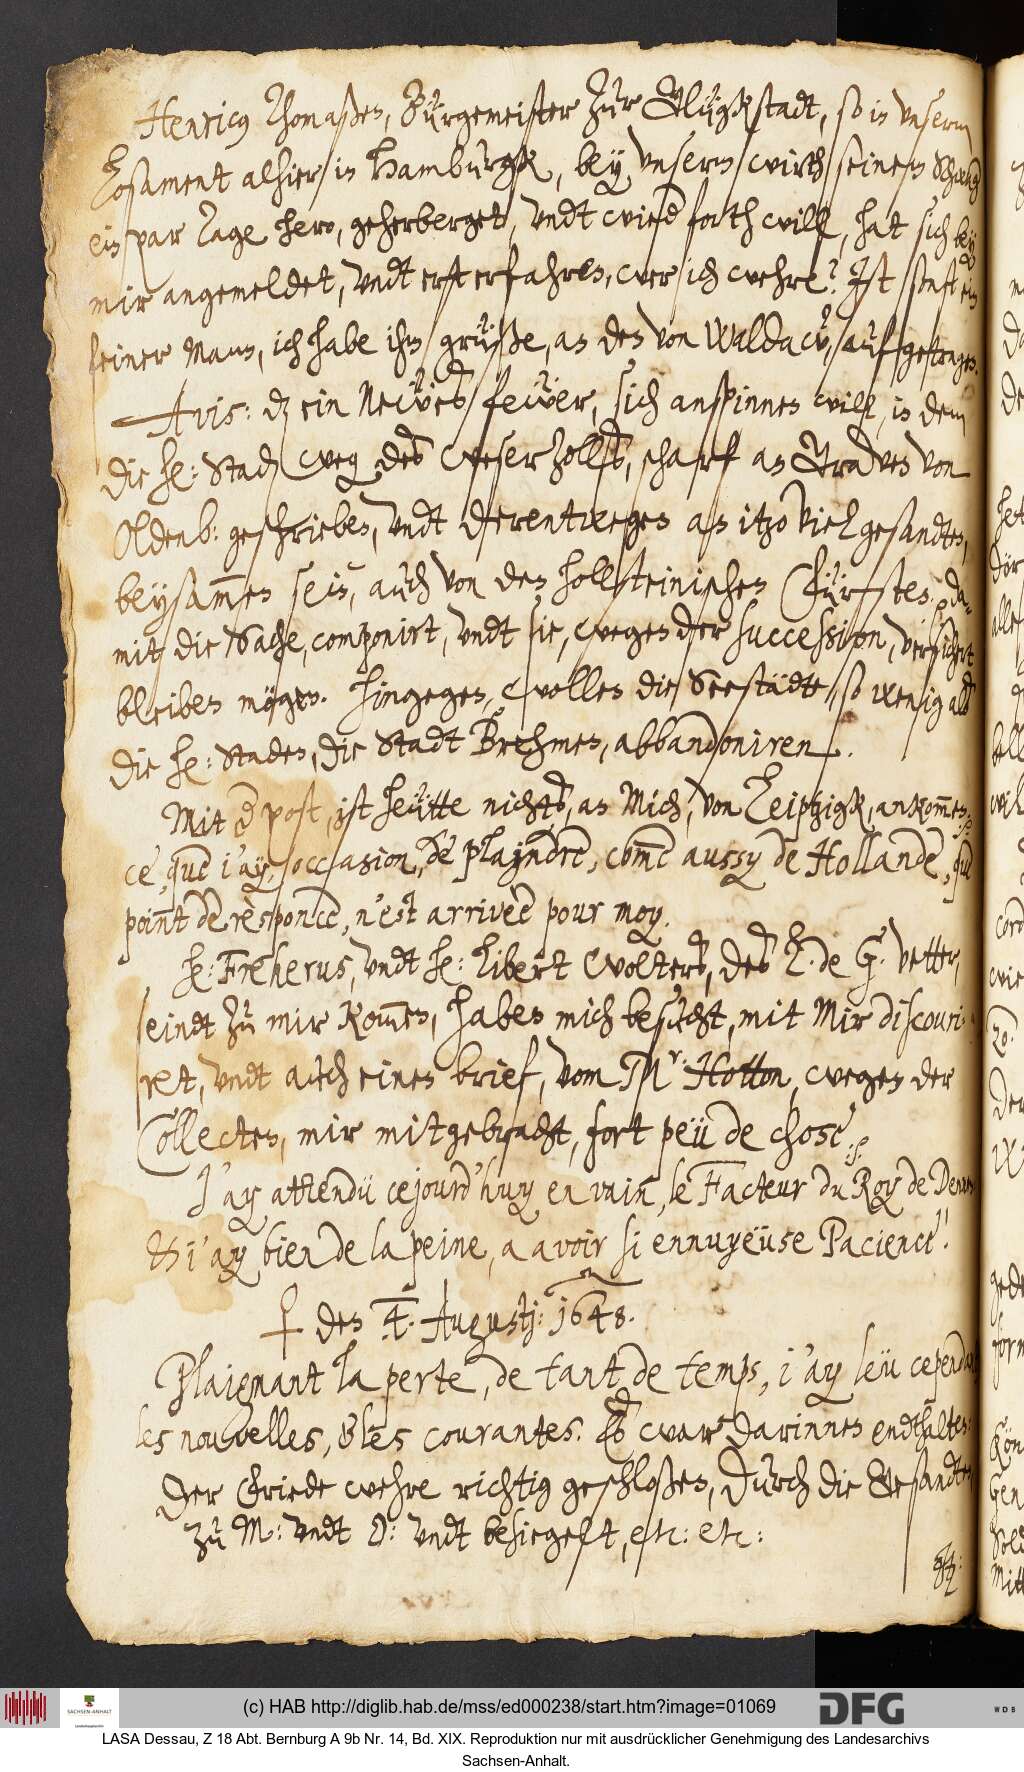 Henricus Thomaßen, Bürgemeister zur Glügkstadt, so in unserm
Losament alhier in Hamburgk, bey unserm wirth seinem Schwag
ein par Tage hero, geherberget, undt wied forth will, hat sich bey
mir angemeldet, undt erst erfahren, wer ich wehre? Ist sonst ein
feiner Mann, ich habe ihm grüße, an den von Waldaw, aufgetragen.
Avis: dz ein Neẅes feẅer, sich anspinnen will, in dem
die he: Stad weg des Weser Zollß, scharf an Graven von
Oldenb: geschrieben, undt derentwegen an itzo viel gesandten,
beysam̅en sein, auch von den hollsteinischen Fürsten, da-
mit die Sache, componirt, undt sie, wegen der succession, versichert
bleiben mögen. Hingegen, wollen die Seestädte, so wenig alß
die he: Staden, die Stadt Brehmen, abbandoniren.
Mit der post, ist heütte nichts, an Mich, von Leiptzigk, ankom̅en,
ce, que i'ay, occasion, de plajndre, comme aussy de Hollande, que
point de responce, n'est arrivèe pour moy.
he: Freherus, undt he: Libert Wolters, des L. de G. vetter,
seindt zu mir kom̅en, haben mich besucht, mit Mir discouri-
ret, undt auch einen brief, vom Mr. Hotton, wegen der
Collecten, mir mitgebracht, fort peü de chose.
J'ay attendü cejourd'huy en vain, le Facteur du Roy de Denn
& i'ay bien de la peine, a avoir si ennuyeüse Pacience!
♀ den 4. Augustj: 1648.
Plaignant la perte, de tant de temps, i'ay leü cependant
les nouvelles, & les courantes. Es war darinnen endthalten:
Der Friede wehre richtig geschloßen, durch die Gesandten
zu M: undt O: undt besiegelt, etc: etc:
(c) HAB http://diglib.hab.de/mss/ed000238/start.htm?image=01069
SACHSEN-ANHALT
DFG
WDB
LASA Dessau, Z 18 Abt. Bernburg A 9b Nr. 14, Bd. XIX. Reproduktion nur mit ausdrücklicher Genehmigung des Landesarchivs
Sachsen-Anhalt.